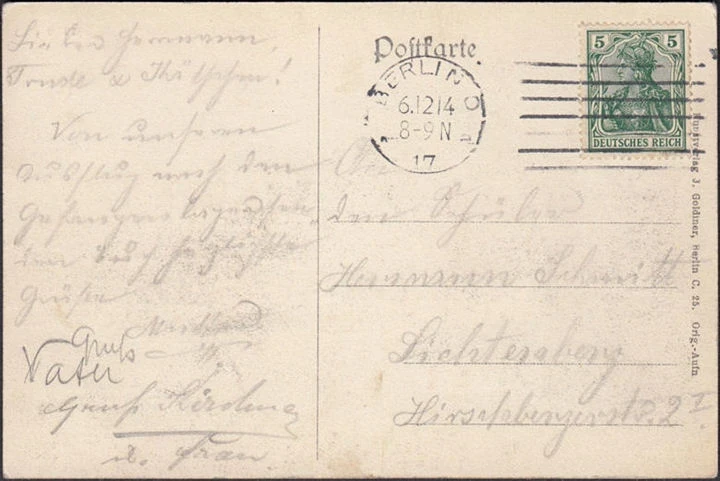 Lieber Herrmann,
Trude & Kätschen!
Von unserem
Ausflug nach dem
Gefangenenlager sen-
den Euch herzlichste
Grüße
Gruß
Vater
Gruß
u. Frau
Postkarte
BERLIN O
6.12 14
8-9 N
17
5 5
DEUTSCHES REICH
An
den Schüler
Hermann Schmitt
Lichtenberg
Hirschbergerstr. 2 I
Kunstverlag J. Goldiner, Berlin C. 25. Orig.-Aufn